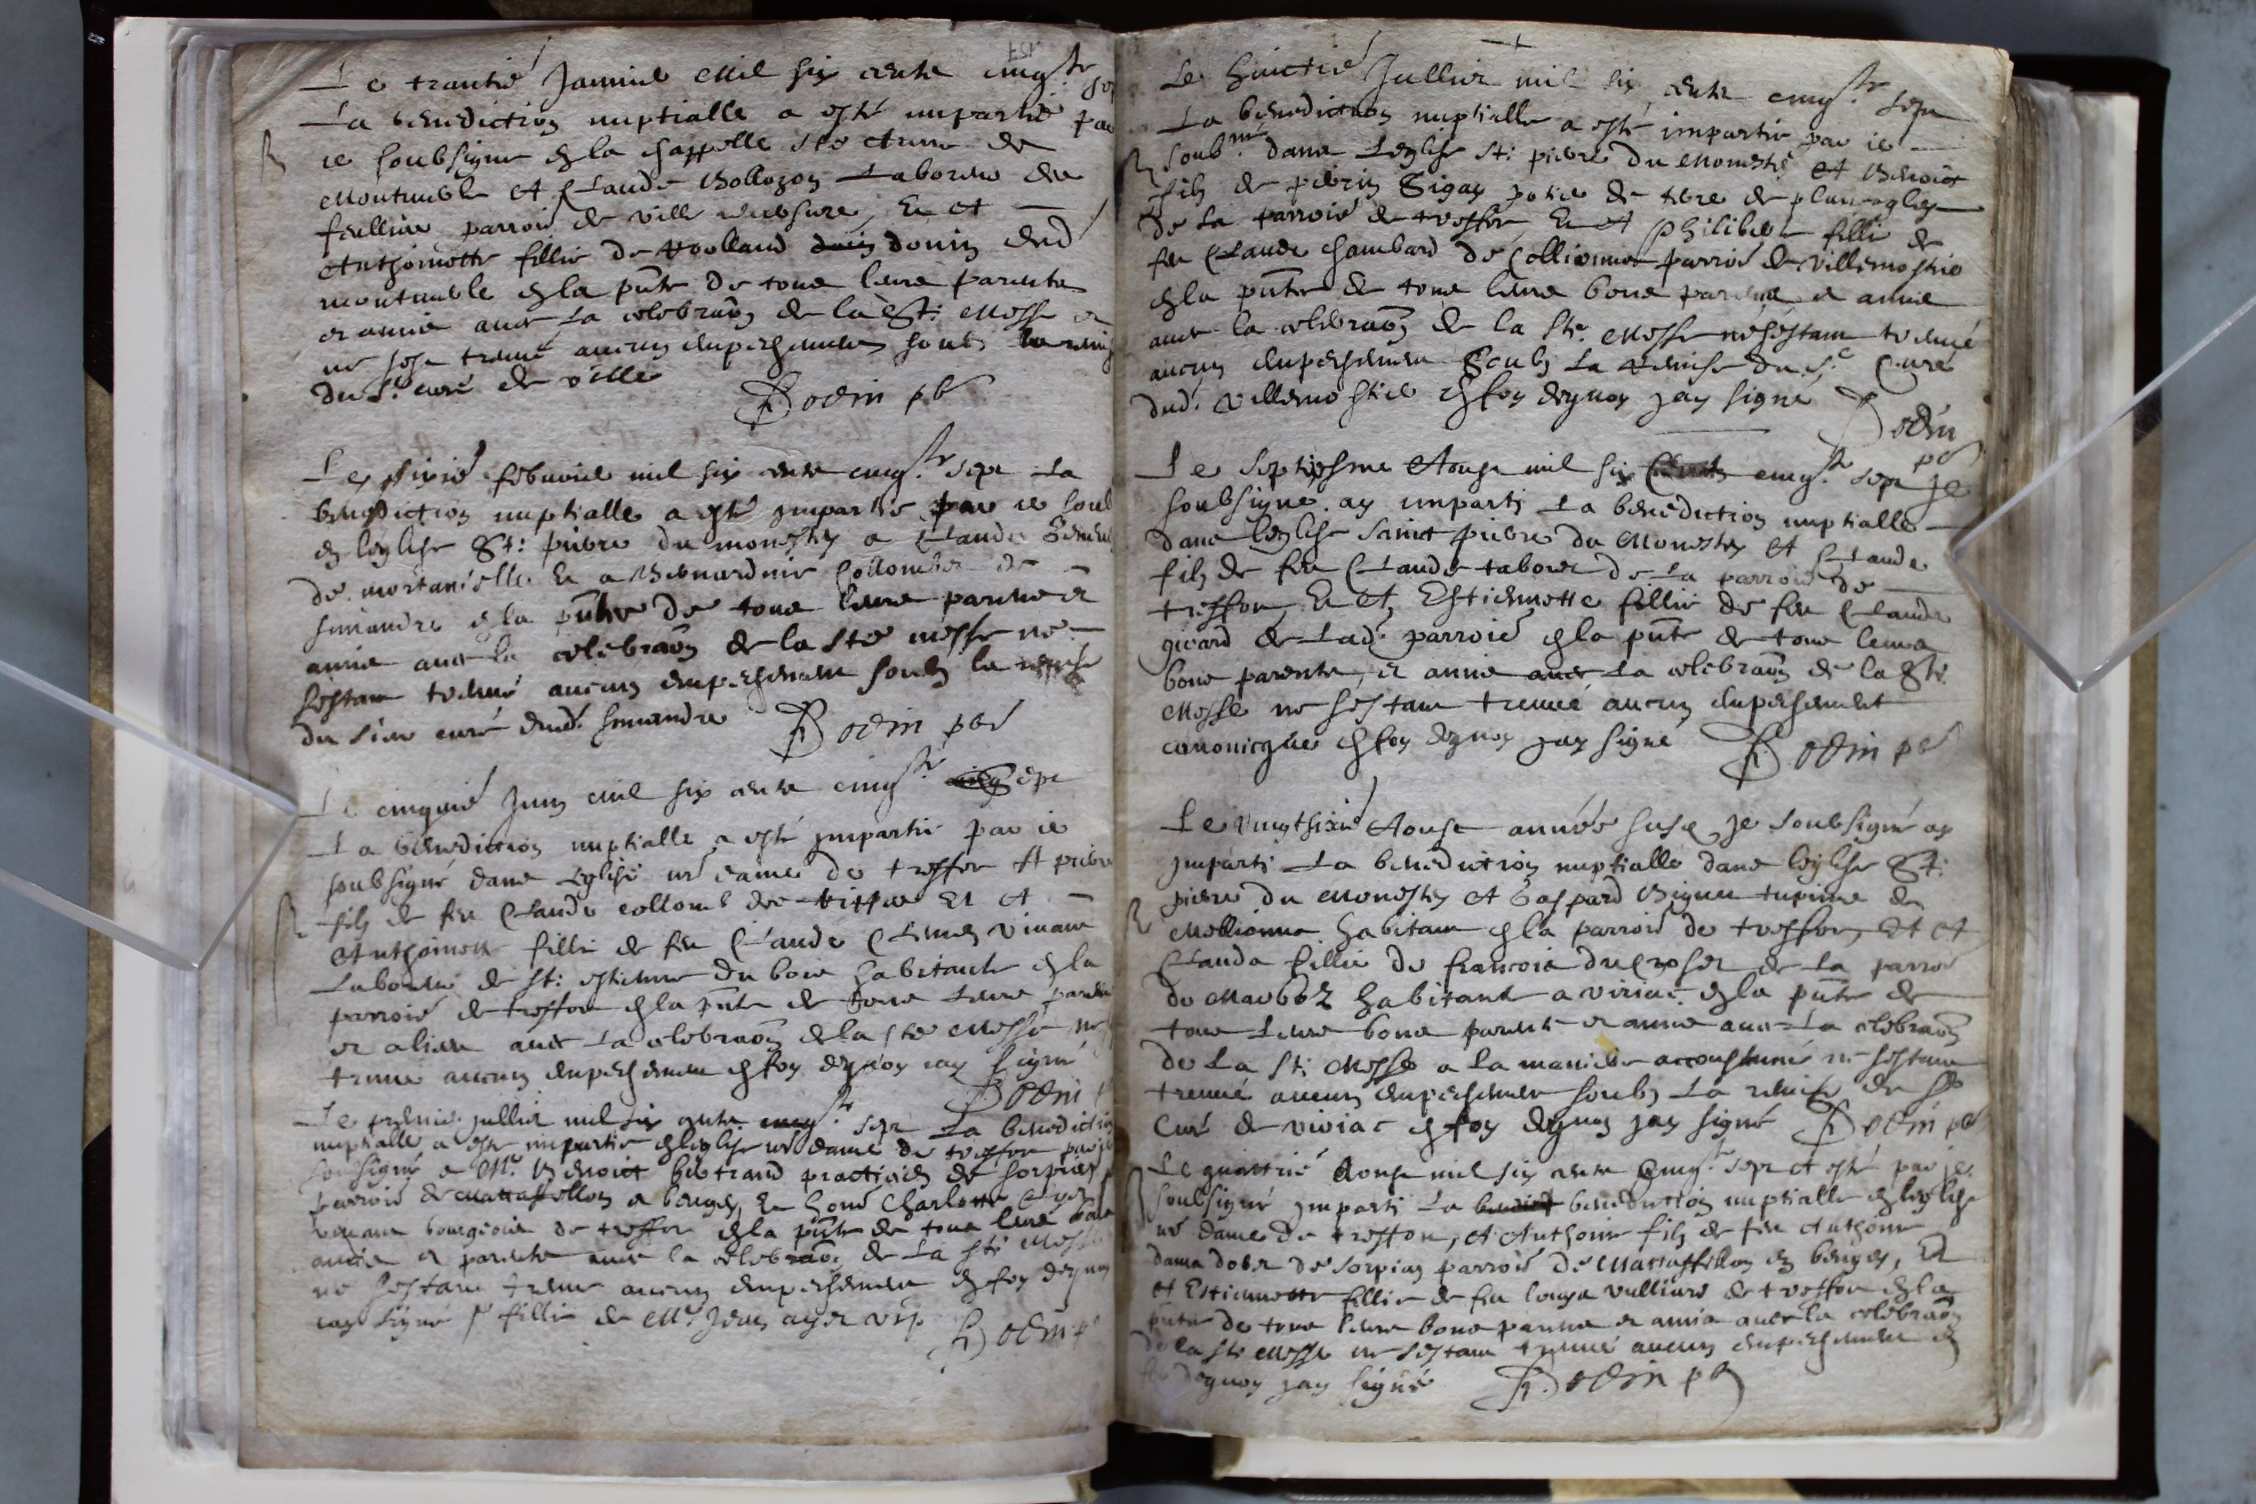 Le trantié Janvié Mil six cents cinq.te
La benediction nuptialle a esté impartie par
je soubsigne en la chappelle ste Anne de
Montmerle A Claude Laboureur de
parroie de ville Et A
Anthoinette fillie de Rolland donin dud
en la pnte de tous leurs parents
et amis avec la celebraon de la Ste Messe et
ne sest treuvé aucun empeschement soubs la
du Sr curé de ville
Bodin pb
Le sixié febvrier mil six cents cinq.te sept La
benediction nuptialle a esté impartie par je soub
en leglise St pierre du monestey a Claude
de Et a Bernardine Collomber de
simandre en la pnte de tous leurs parents et
amis avec la celebraon de la ste messe ne
sestant treuvé aucun empeschement soubs la remise
du sieur curé dud simandre
Bodin pbr
Le cinquié Juin mil six cents cinq.te sept
La benediction nuptialle a esté impartie par je
soubsigné dans Leglise nre dame de treffor A pierre
filz de feu Claude collomb des Et A
Anthoinette fillie de feu Claude vivant
Laboureur de St estienne du bois habitants en la
parroié de treffort en la pnte de tous Leurs parents
et aliez avec La celebraon de la ste Messe
treuvé aucun empeschement en foy dequoy jay signé
Bodin
Le premié jullié mil six cents cinq.te sept La benediction
nuptialle a esté impartie en leglise nre dame de treffor par je
soubsigné a Mre Benoict bertrand practicien de sorpias
parroié de Mattaffellon a beugey Et honê Charlotte
vivant bourgeois de treffor en la pnte de tous leurs bons
amis et parents avec la celebraon de La Ste Messe
ne sestant treuvé aucun empeschement en foy dequoy
jay signé fillie de Mre Jean
Bodin p
Le huictié Jullié mil six cents cinq.te sept
La benediction nuptialle a esté impartie par je
soub.né dans Leglise St pierre du Monestey A Benoict
filz de pierin Gigay potier de terre de
de La parroié de treffor Et A Philiberte fillie de
feu Claude Chambard de Collionnas parroié de Villemostie
en la pnte de tous leurs bons parents et amis
avec la celebraon de la Ste Messe ne sestant treuvé
aucun empeschement Soubs La Remise du Sr Curé
dud. Villemostie en foy dequoy jay signé
Bodin
pb
Le septiesme Aoust mil six cents cinq.te sept Je
soubsigné ay imparti La benediction nuptialle
dans leglise sainct pierre du Monestey A Claude
filz de feu Claude tabouret de La parroié de
treffor Et A Estiennette fillie de feu Claude
girard de Lad. parroié en la pnte de tous leurs
bons parents et amis avec La celebraon de la Ste
Messe ne sestant treuvé aucun empeschement
canonicque en foy dequoy jay signé
Bodin pb
Le vingtsixié Aoust année susd Je soubsigné ay
imparti La benediction nuptialle dans leglise St
pierre du Monestey A Gaspard tupinier de
Mellionna habitant en la parroié de treffor Et A
Clauda fillie de francois du croset de La parroié
de Marboz habitant a viriac en la pnte de
tous Leurs bons parents et amis avec La celebraon
de La Ste Messe a la maniere accoustumé ne sestant
treuvé aucun empeschement soubs La remise du Sr
Curé de viriac en foy dequoy jay signé
Bodin pb
Le quattrié Aoust mil six cents cinq.te sept A esté par je
soubsigné imparti La benediction nuptialle en leglise
nre dame de treffor, A Anthoine filz de feu Anthoine
de sorpias parroié de Mattaffellon en beugey, Et
A Estiennette fillie de feu Loys vulliard de treffor en la
pnte de tous leurs bons parents et amis avec la celebraon
de la Ste Messe ne sestant treuvé aucun empeschement en
foy dequoy jay signé
Bodin pb